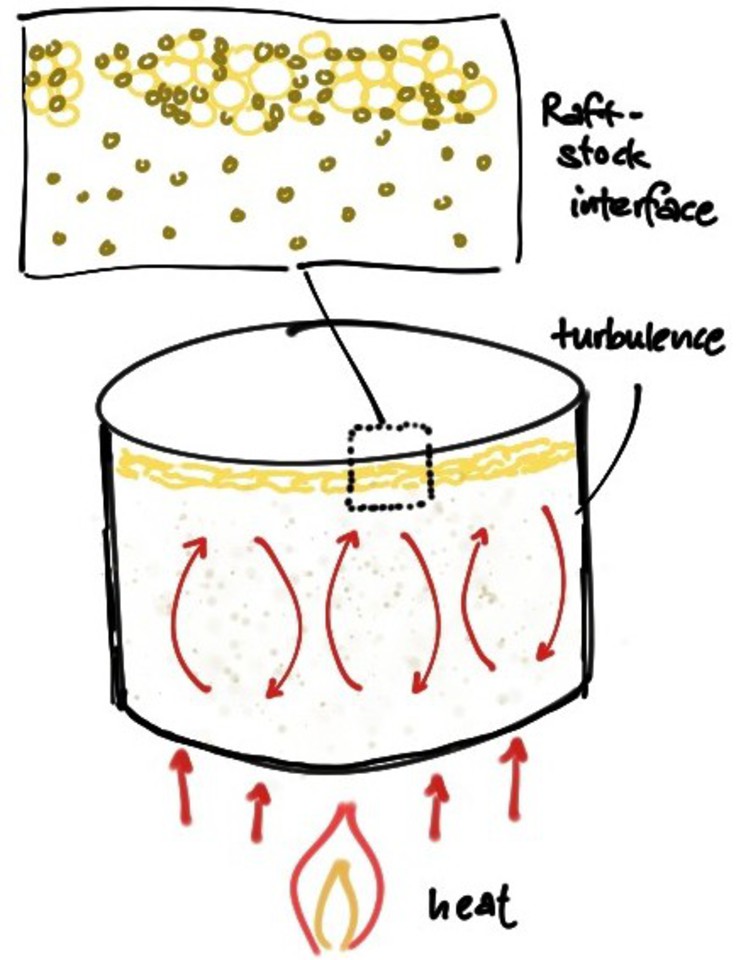 Raft-
stock
interface
turbulence
heat